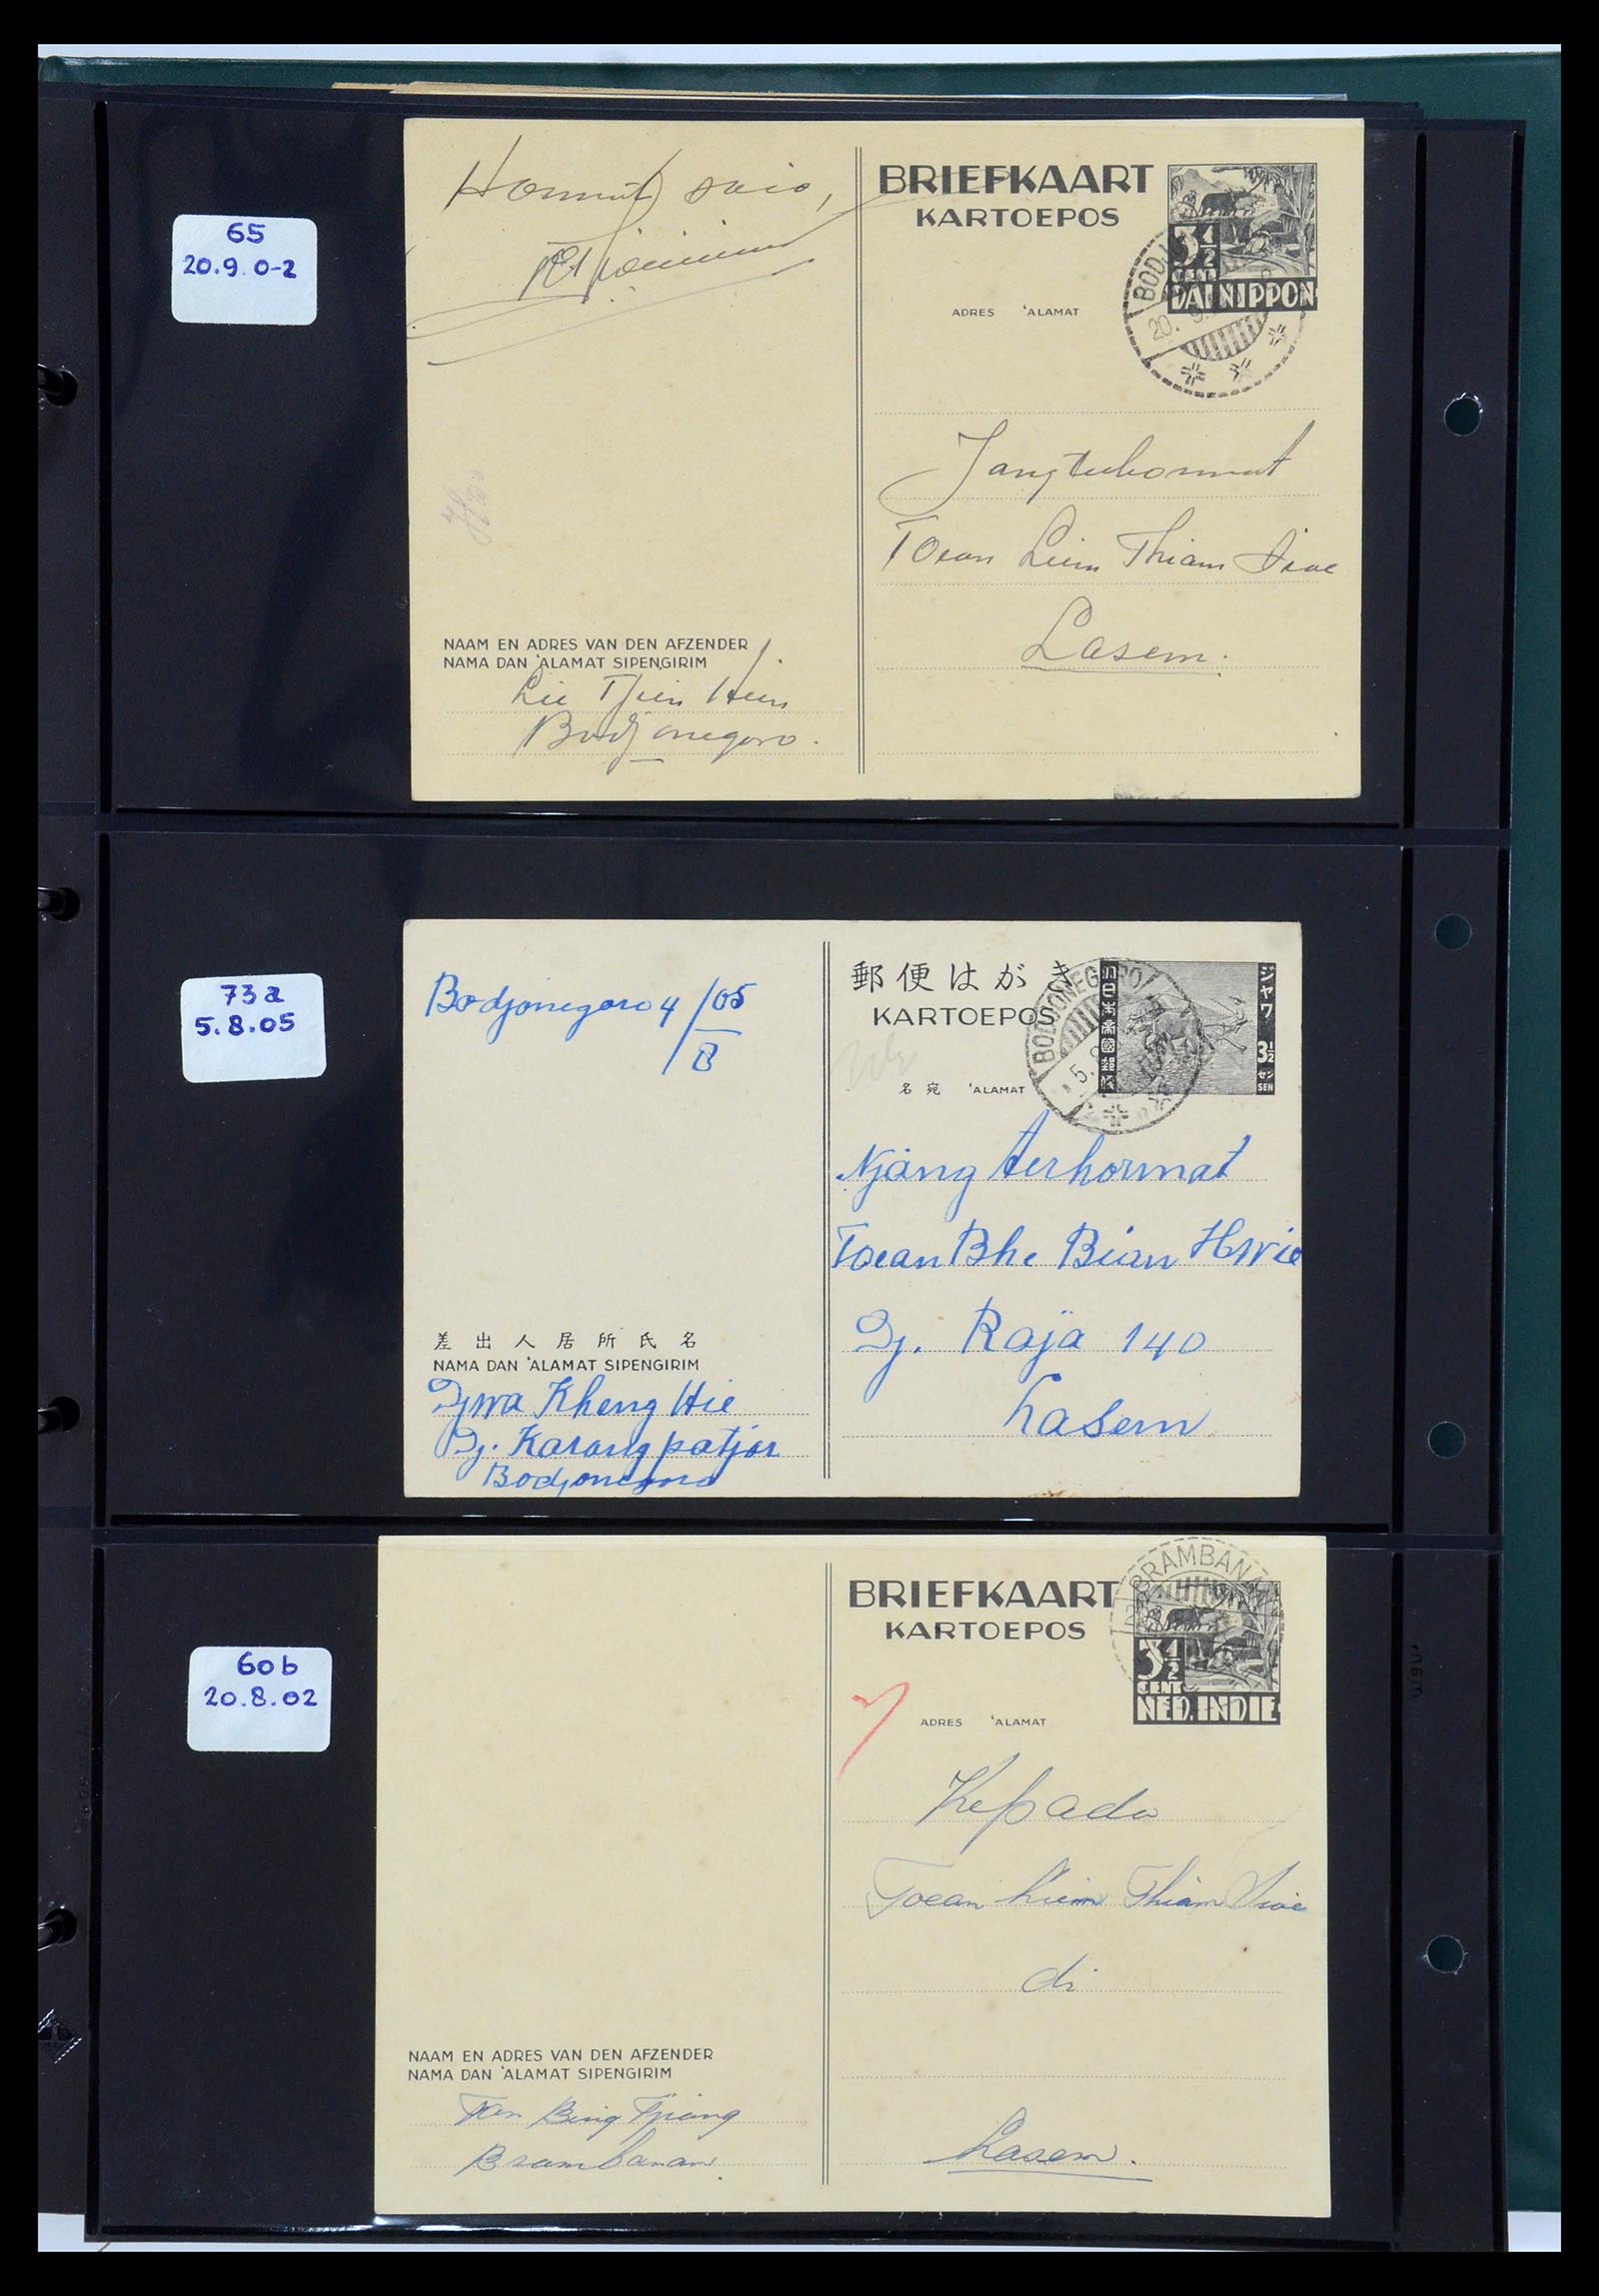 65
20.9.0-2
Hormat saia,
BRIEFKAART
KARTOEPOS
3½
CENT
DAI NIPPON
ADRES 'ALAMAT
BODJ
20. 9.
Jang terhormat
Toean Liem Thiam Sioe
Lasem.
NAAM EN ADRES VAN DEN AFZENDER
NAMA DAN 'ALAMAT SIPENGIRIM
Lie Tjien Hien
Bodjonegoro.
73a
5.8.05
Bodjonegoro 4/05
8
郵便はがき
KARTOEPOS
名宛 'ALAMAT
BODJONEGORO
5.
ジャワ
3½
セン
SEN
Njang terhormat
Toean Bhe Bian Hwie
Dj. Raja 140
Lasem
差出人居所氏名
NAMA DAN 'ALAMAT SIPENGIRIM
Djwa Kheng Hie
Dj. Karangpatjar
Bodjonegoro
60b
20.8.02
BRIEFKAART
KARTOEPOS
BRAMBANAN
3½
CENT
NED. INDIE
ADRES 'ALAMAT
Kepada
Toean Liem Thiam Sioe
di
Lasem.
NAAM EN ADRES VAN DEN AFZENDER
NAMA DAN 'ALAMAT SIPENGIRIM
Tan Bing Tjiang
Brambanan